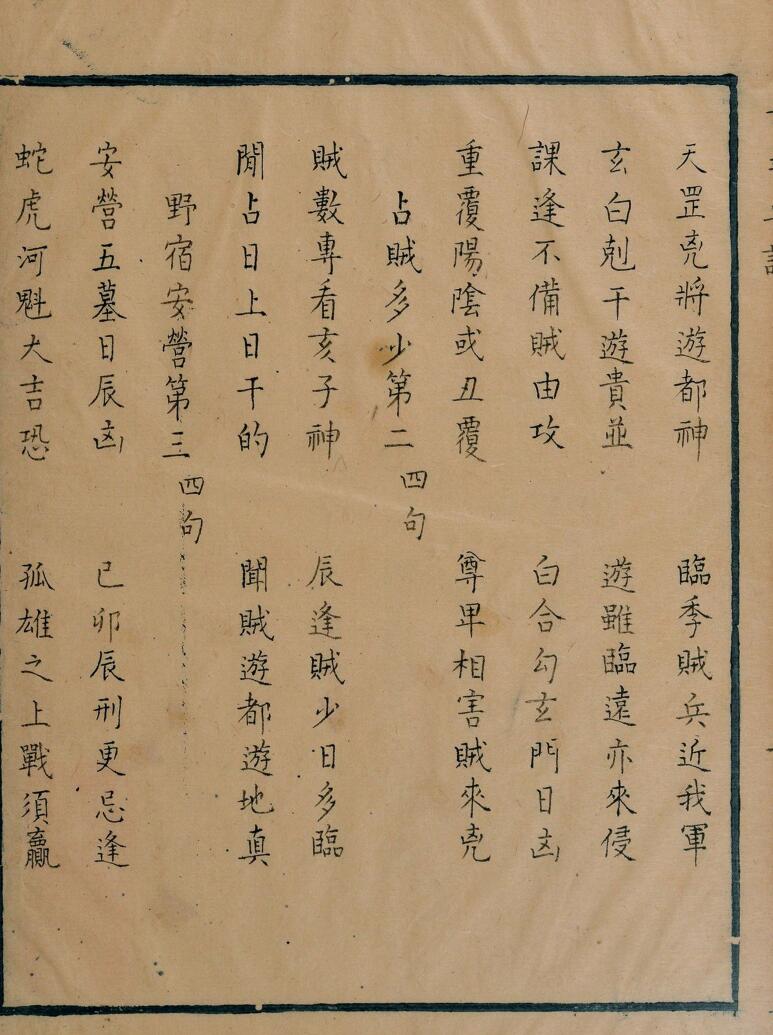 天罡兇將遊都神　臨季賊兵近我軍
玄白剋干遊貴並　遊雖臨遠亦來侵
課逢不備賊由攻　白合勾玄門日凶
重覆陽陰或丑覆　尊卑相害賊來兇
占賊多少第二 四句
賊數專看亥子神　辰逢賊少日多臨
閒占日上日干的　聞賊遊都遊地真
野宿安營第三 四句
安營五墓日辰凶　巳卯辰刑更忌逢
蛇虎河魁大吉恐　孤雄之上戰須贏